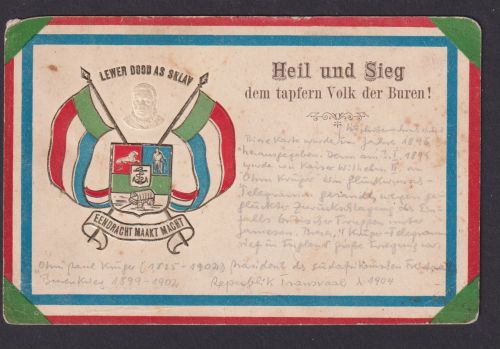 LEWER DOOD AS SKLAV
EENDRACHT MAAKT MACHT
Heil und Sieg
dem tapfern Volk der Buren!
Diese Karte wurde im Jahre 1896
herausgegeben. Denn am 3.I.1896
wurde von Kaiser Wilhelm II. an
"Ohm Krüger" ein Glückwunsch-
Telegramm gesandt wegen ge-
glückter Zurückschlagung des Ein-
falls britischer Truppen unter
Jameson. Diese "Krüger-Telegramm"
rief in England große Erregung vor
"Ohm" Paul Krüger (1825-1902) Präsident der südafrikanischen
Burenkrieg 1899-1902 Republik Transvaal 1904